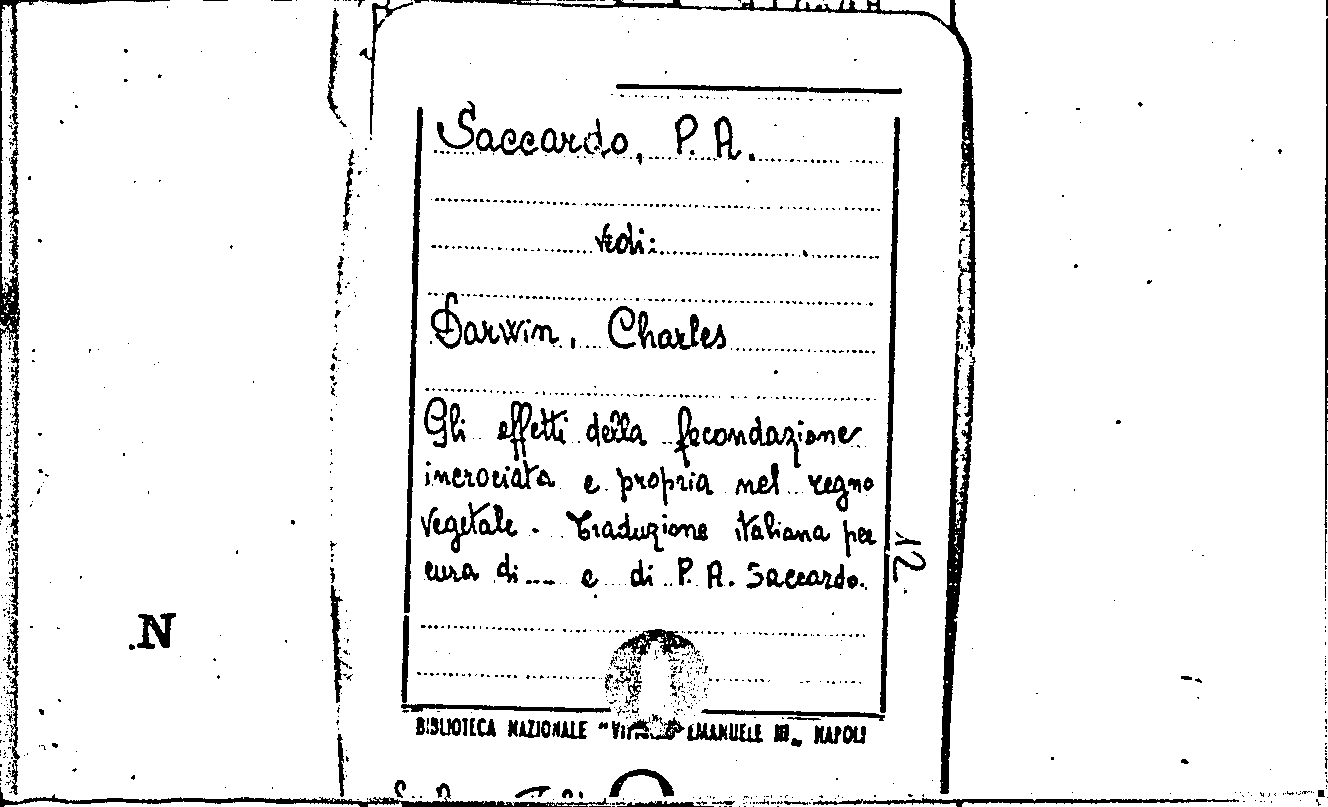 Saccardo, P. A.
Vedi:
Darwin, Charles
Gli effetti della fecondazione
incrociata e propria nel regno
vegetale. Traduzione italiana per
cura di ... e di P. A. Saccardo.
12
N
BIBLIOTECA NAZIONALE "VITTORIO EMANUELE III„ NAPOLI